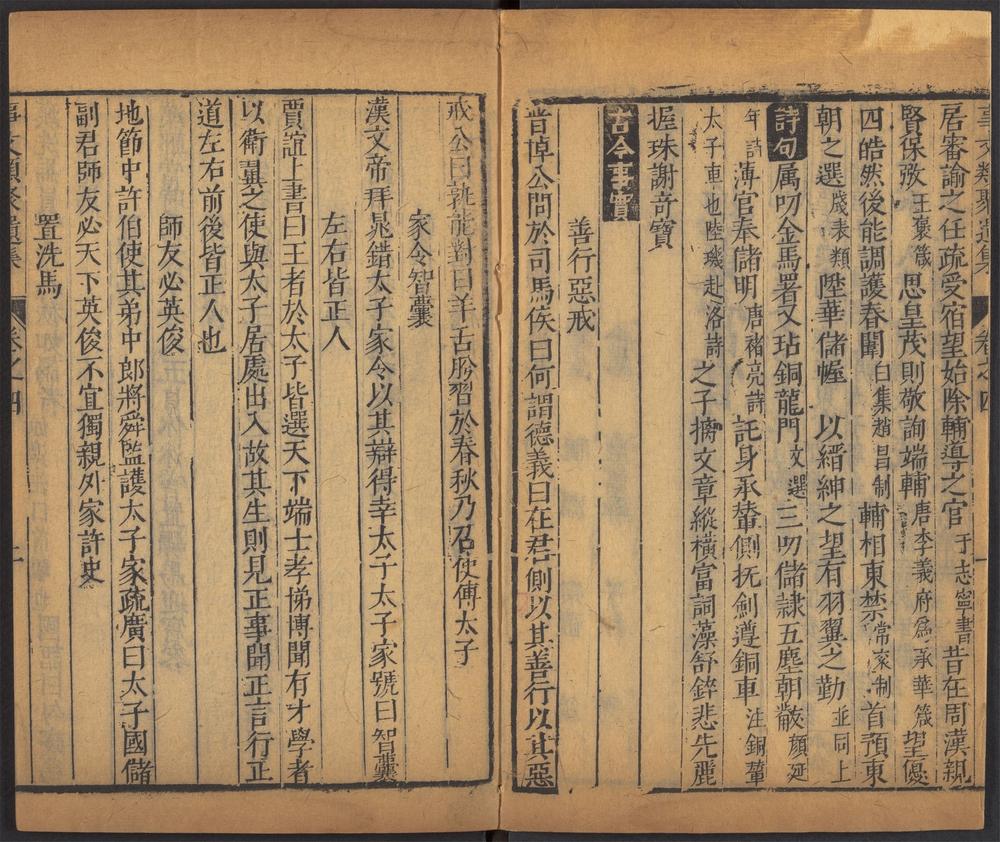 事文類聚遺集 卷之四
居審諭之任疏受宿望始除輔導之官于志寧書昔在周漢親
賢保攷王褒箴思皇茂則敬詢端輔唐李義府爲承華箴望優
四皓然後能調護春闈白集趙昌制輔相東禁常衮制首預東
朝之選箴表類陞華儲幄 以縉紳之望有羽翼之勤並同上
詩句属叨金馬署又玷銅龍門文選三叨儲隸五塵朝黻顏延
年詩薄宦奉儲明唐褚亮詩託身承輦側抚劍遵銅車注銅輦
太子車也陸璣赴洛詩之子摛文章縱横富詞藻舒錦悲先麗
握珠謝竒寶
古今事實
善行惡戒
晋悼公問於司馬侯曰何謂德義曰在君側以其善行以其惡
戒公曰孰能對曰羊舌肸習於春秋乃召使傅太子
家令智囊
漢文帝拜晁錯太子家令以其辯得幸太子太子家號曰智囊
左右皆正人
賈誼上書曰王者於太子皆選天下端士孝悌博聞有才學者
以衛翼之使與太子居處出入故其生則見正事聞正言行正
道左右前後皆正人也
師友必英俊
地節中許伯使其弟中郎將舜監護太子家疏廣曰太子國儲
副君師友必天下英俊不宜獨親外家許史
置洗馬
事文類聚遺集 卷之四